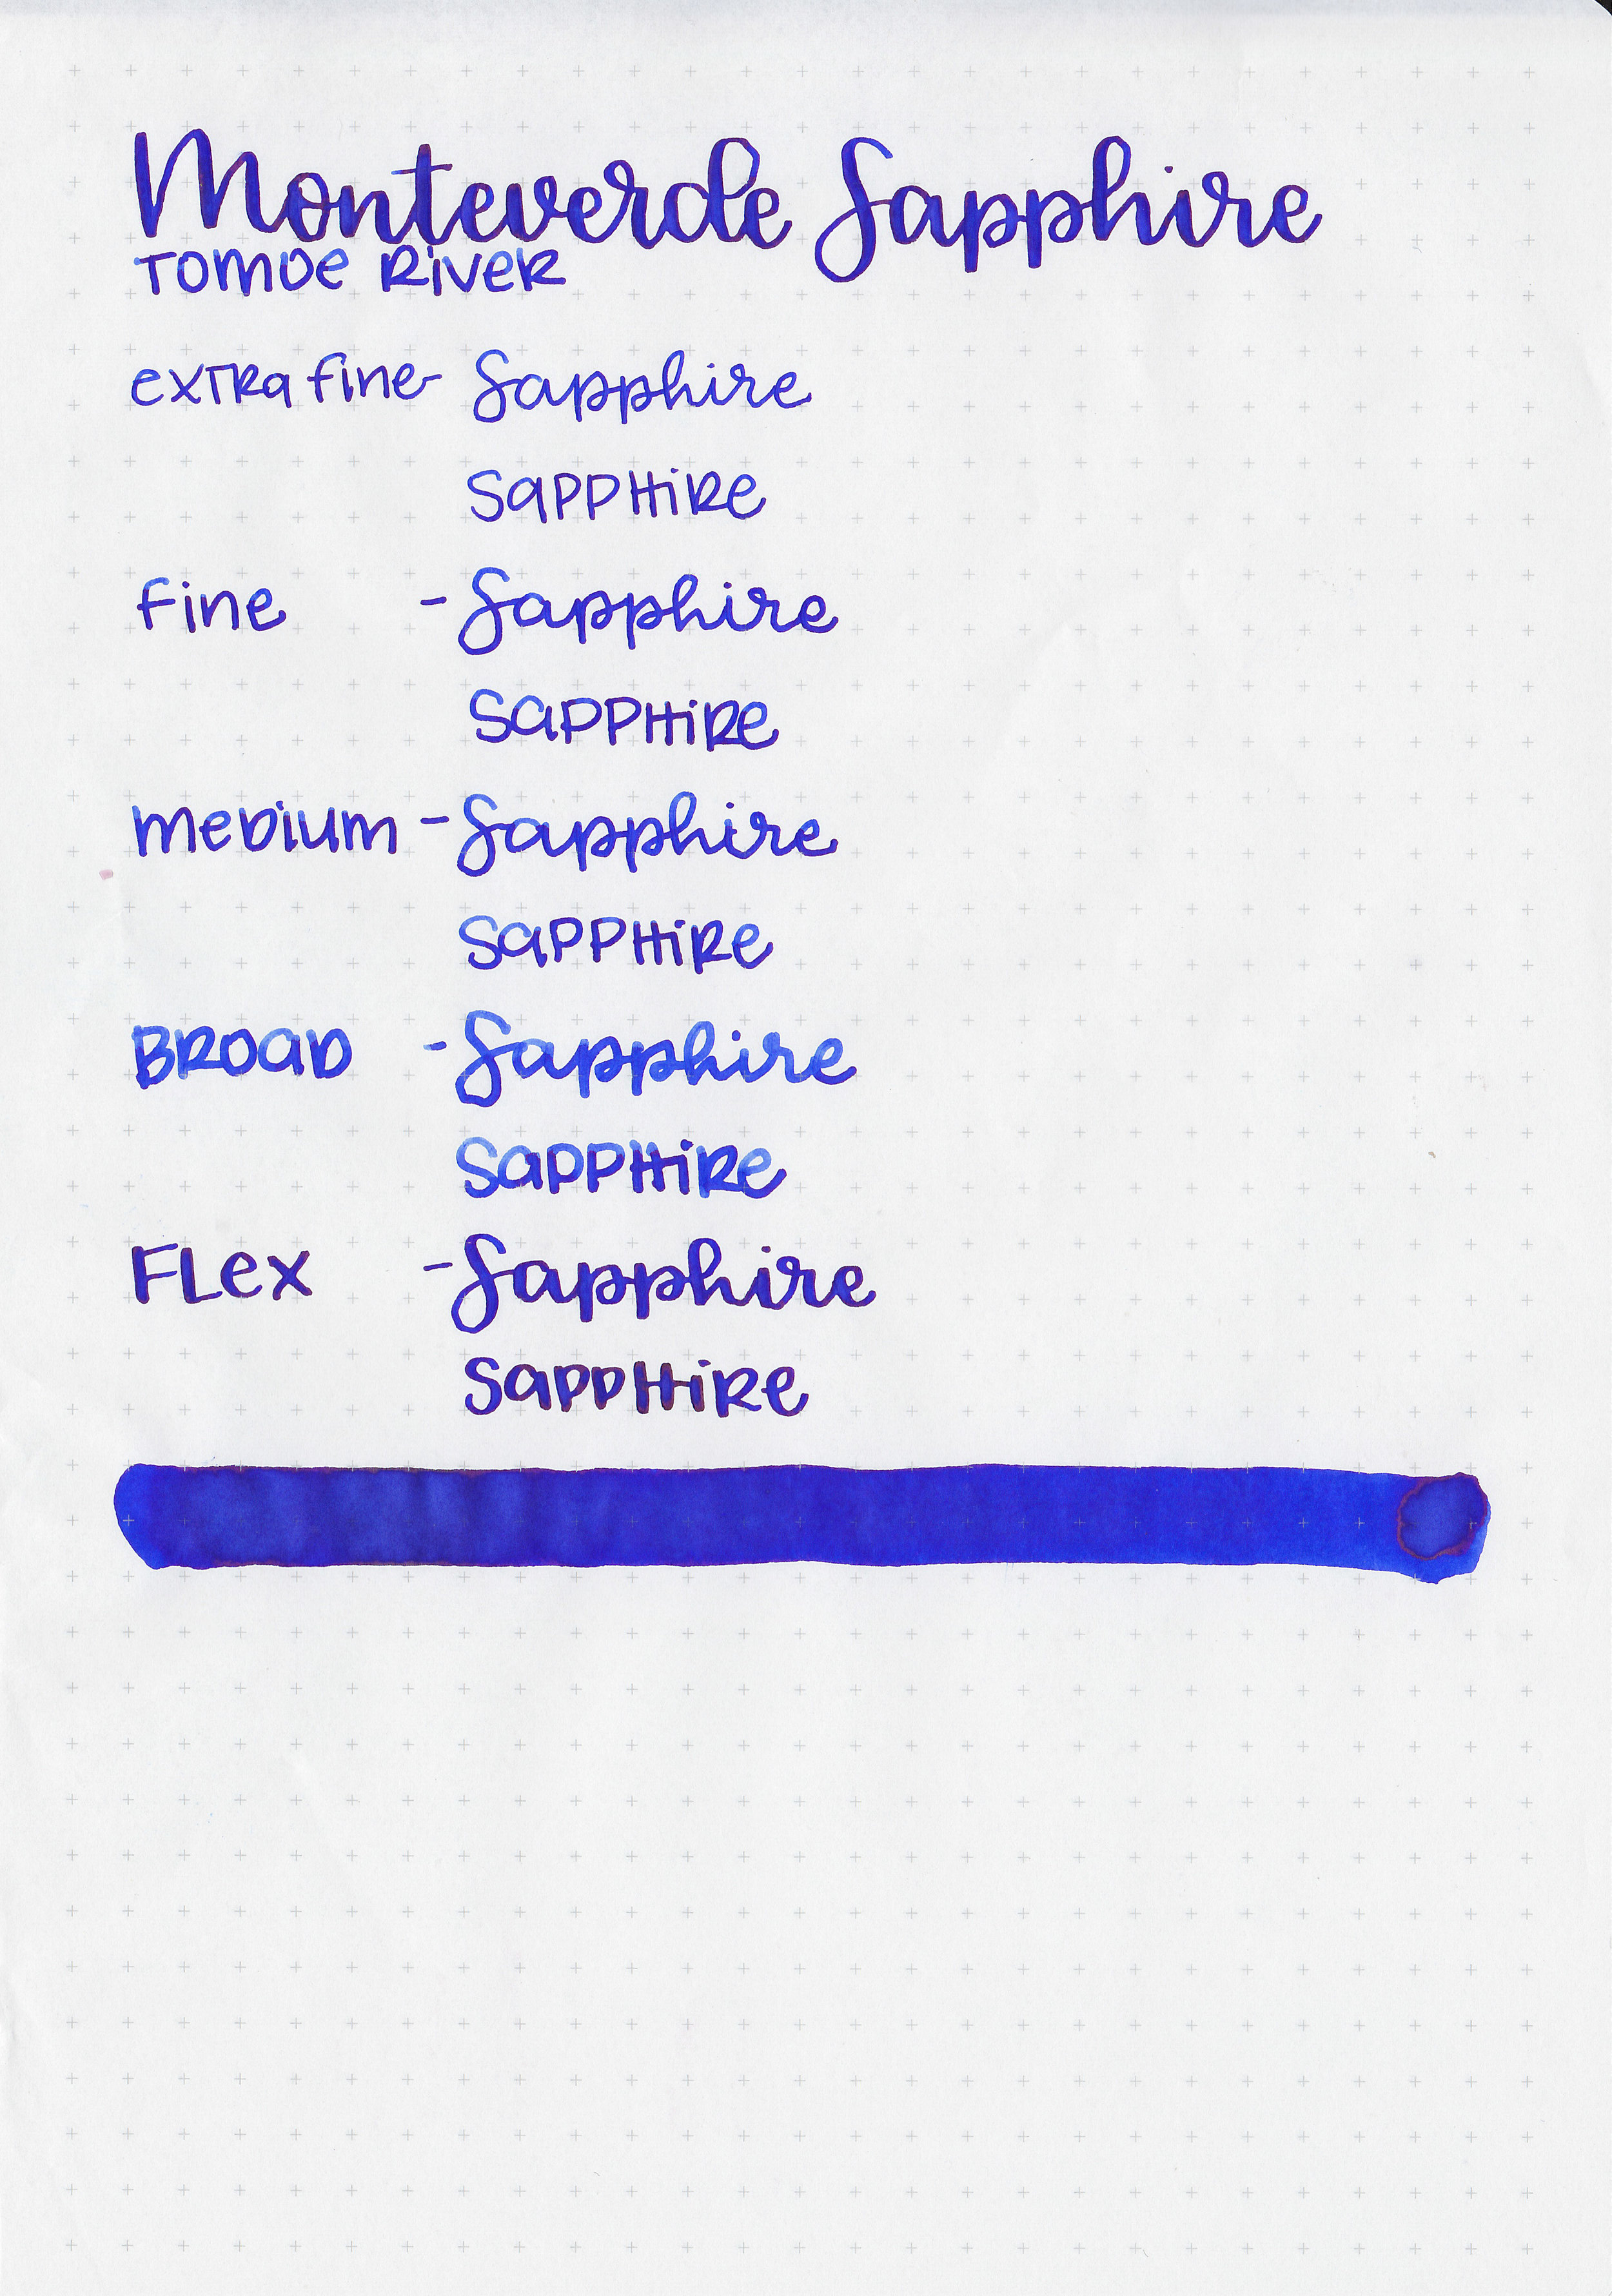 Monteverde Sapphire
Tomoe River
extra fine- Sapphire
Sapphire
fine - Sapphire
Sapphire
medium - Sapphire
Sapphire
Broad - Sapphire
Sapphire
Flex - Sapphire
Sapphire